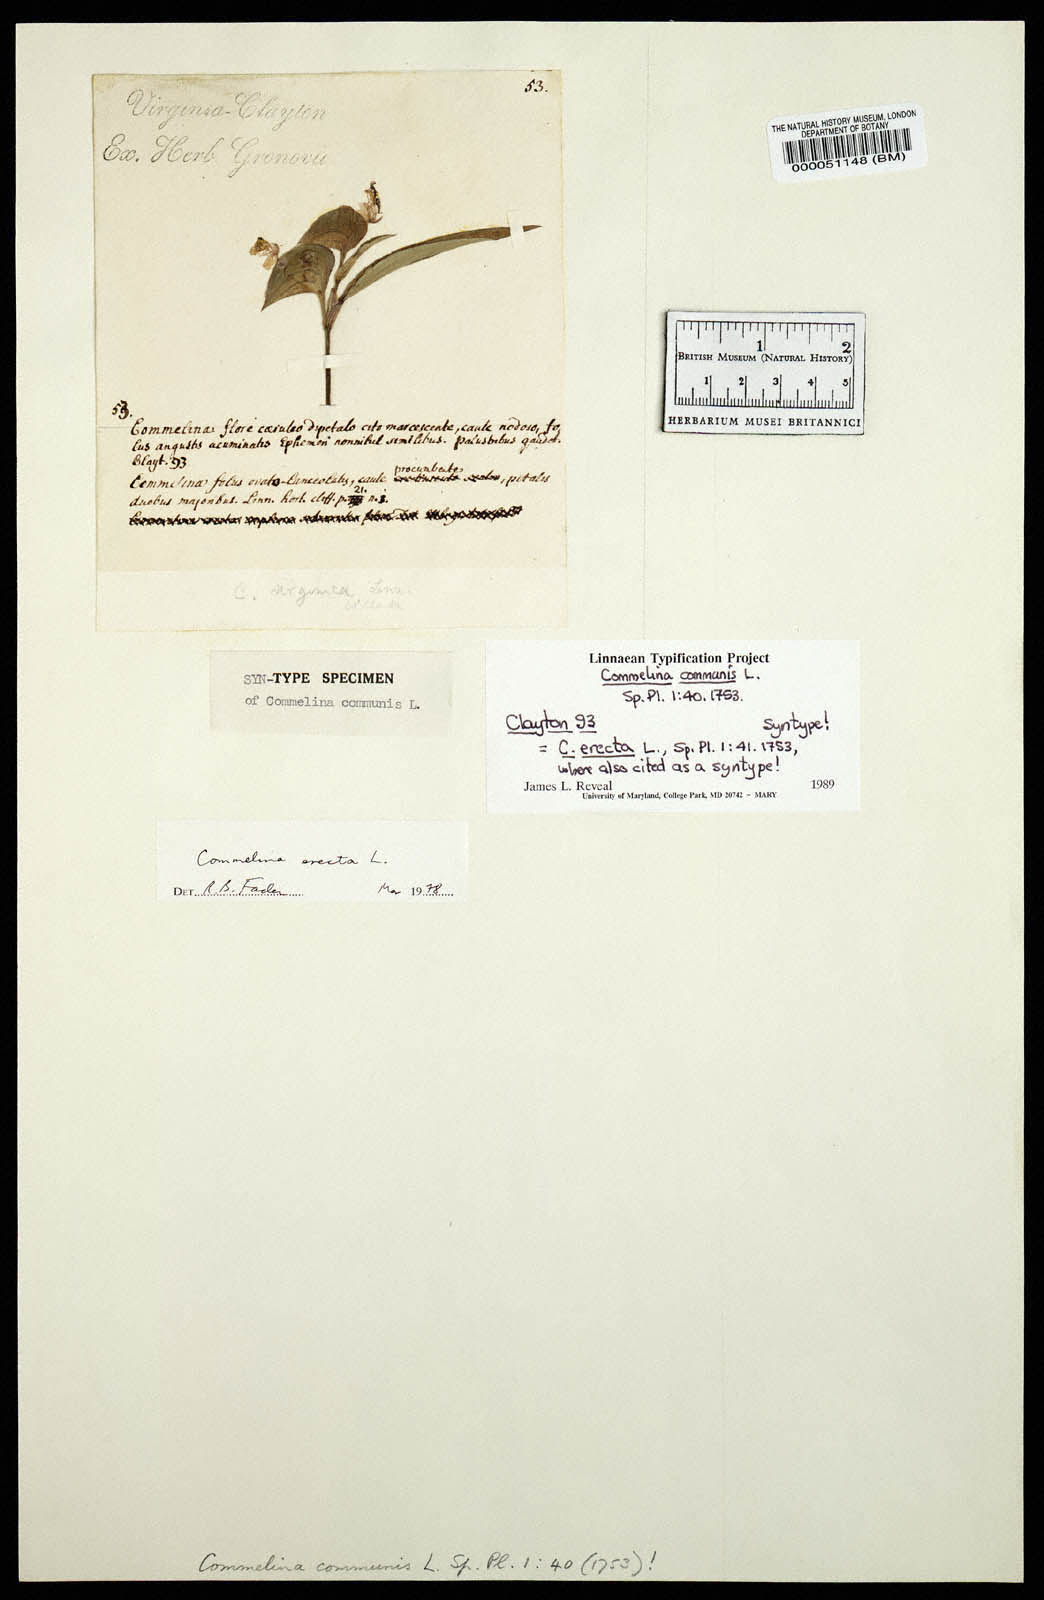 53.
Virginia-Clayton
Ex. Herb. Gronovii
THE NATURAL HISTORY MUSEUM, LONDON
DEPARTMENT OF BOTANY
000051148 (BM)
1 2
BRITISH MUSEUM (NATURAL HISTORY)
1 2 3 4 5
HERBARIUM MUSEI BRITANNICI
53.
Commelina flore cæruleo dipetalo cito marcescente, caule nodoso, fo,
liis angustis acuminatis Ephemeri nonnihil similibus. palustribus gaudet.
Clayt. 93
Commelina foliis ovato-lanceolatis, caule procumbente, petalis
duobus majoribus. Linn. hort. cliff. p. 21. n.
C. virginica Linn.
SYN-TYPE SPECIMEN
of Commelina communis L.
Linnaean Typification Project
Commelina communis L.
Sp. Pl. 1:40. 1753.
Clayton 93 Syntype!
= C. erecta L., Sp. Pl. 1: 41. 1753,
where also cited as a syntype!
James L. Reveal 1989
University of Maryland, College Park, MD 20742 – MARY
Commelina erecta L.
DET. R. B. Faden Mar 1978
Commelina communis L. Sp. Pl. 1: 40 (1753)!